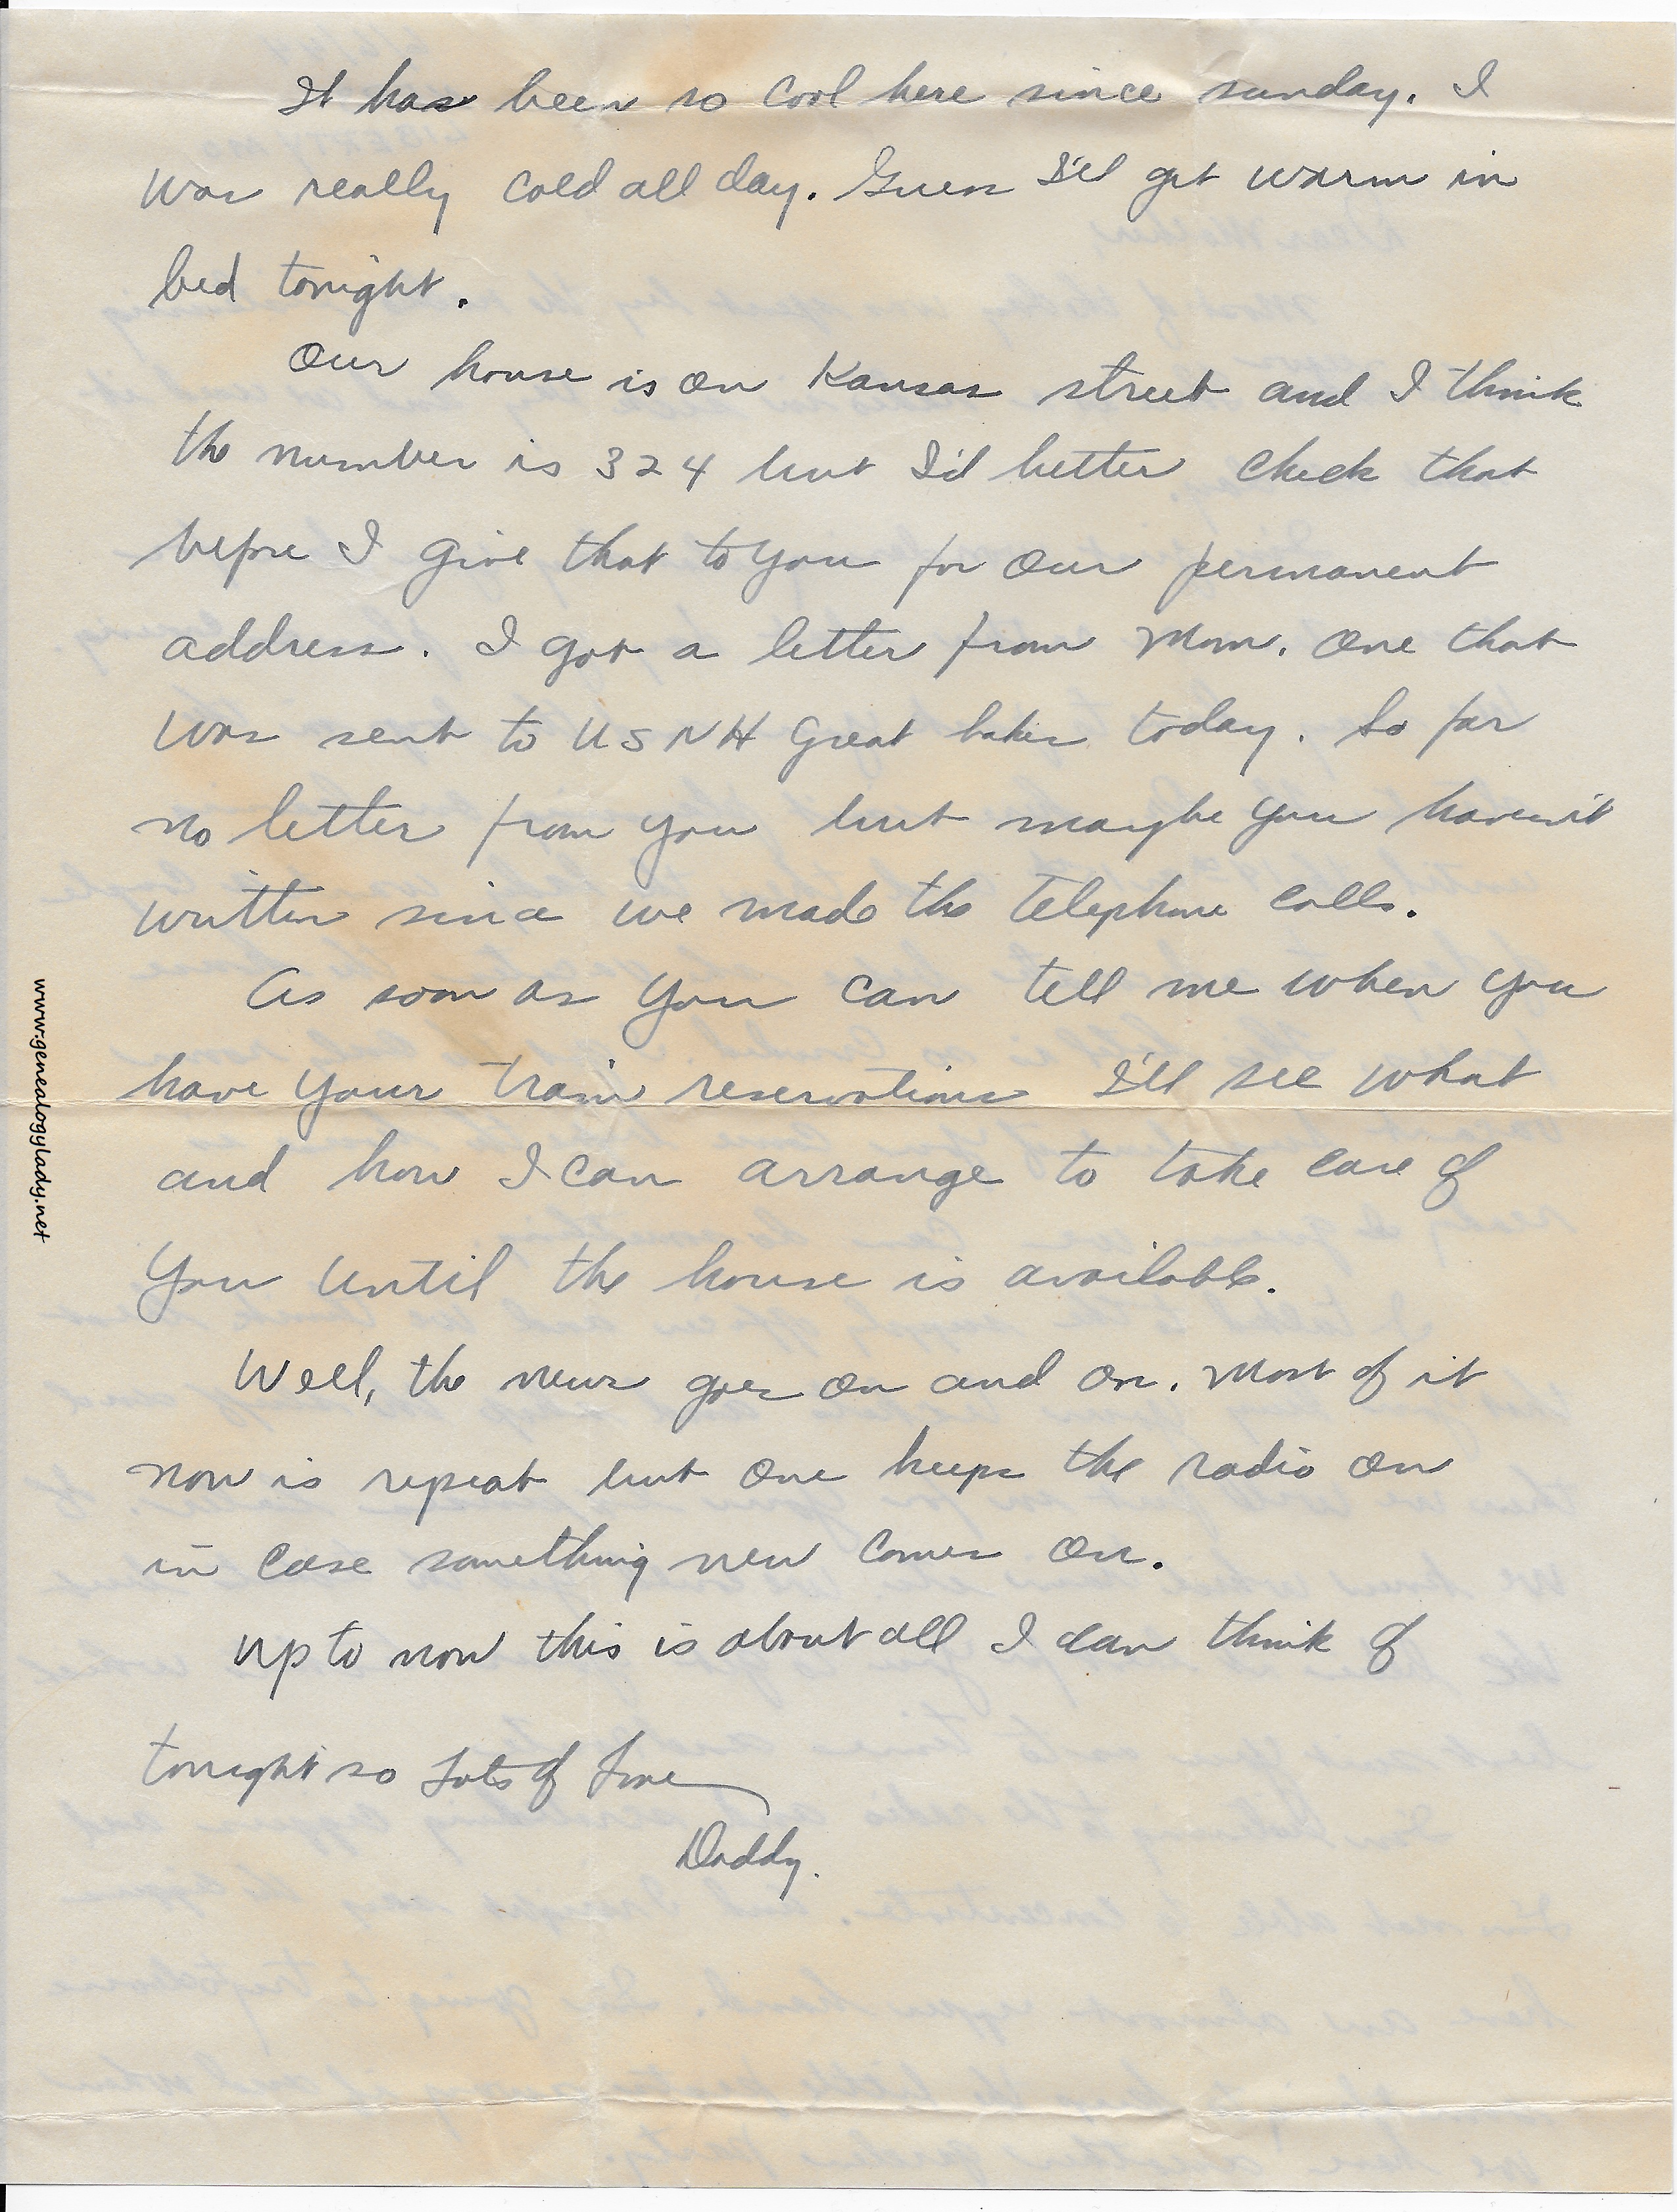 It has been so cool here since sunday. I
was really cold all day. Guess I'll get warm in
bed tonight.
Our house is on Kansas street and I think
the number is 324 but I'd better check that
before I give that to you for our permanent
address. I got a letter from Mom. One that
was sent to USNH Great Lakes today. So far
no letter from you but maybe you haven't
written since we made the telephone calls.
As soon as you can tell me when you
have your train reservations I'll see what
and how I can arrange to take care of
you until the house is available.
Well, the news goes on and on. Most of it
now is repeat but one keeps the radio on
in case something new comes on.
Up to now this is about all I can think of
tonight so Lots of Love
Daddy.
www.genealogylady.net